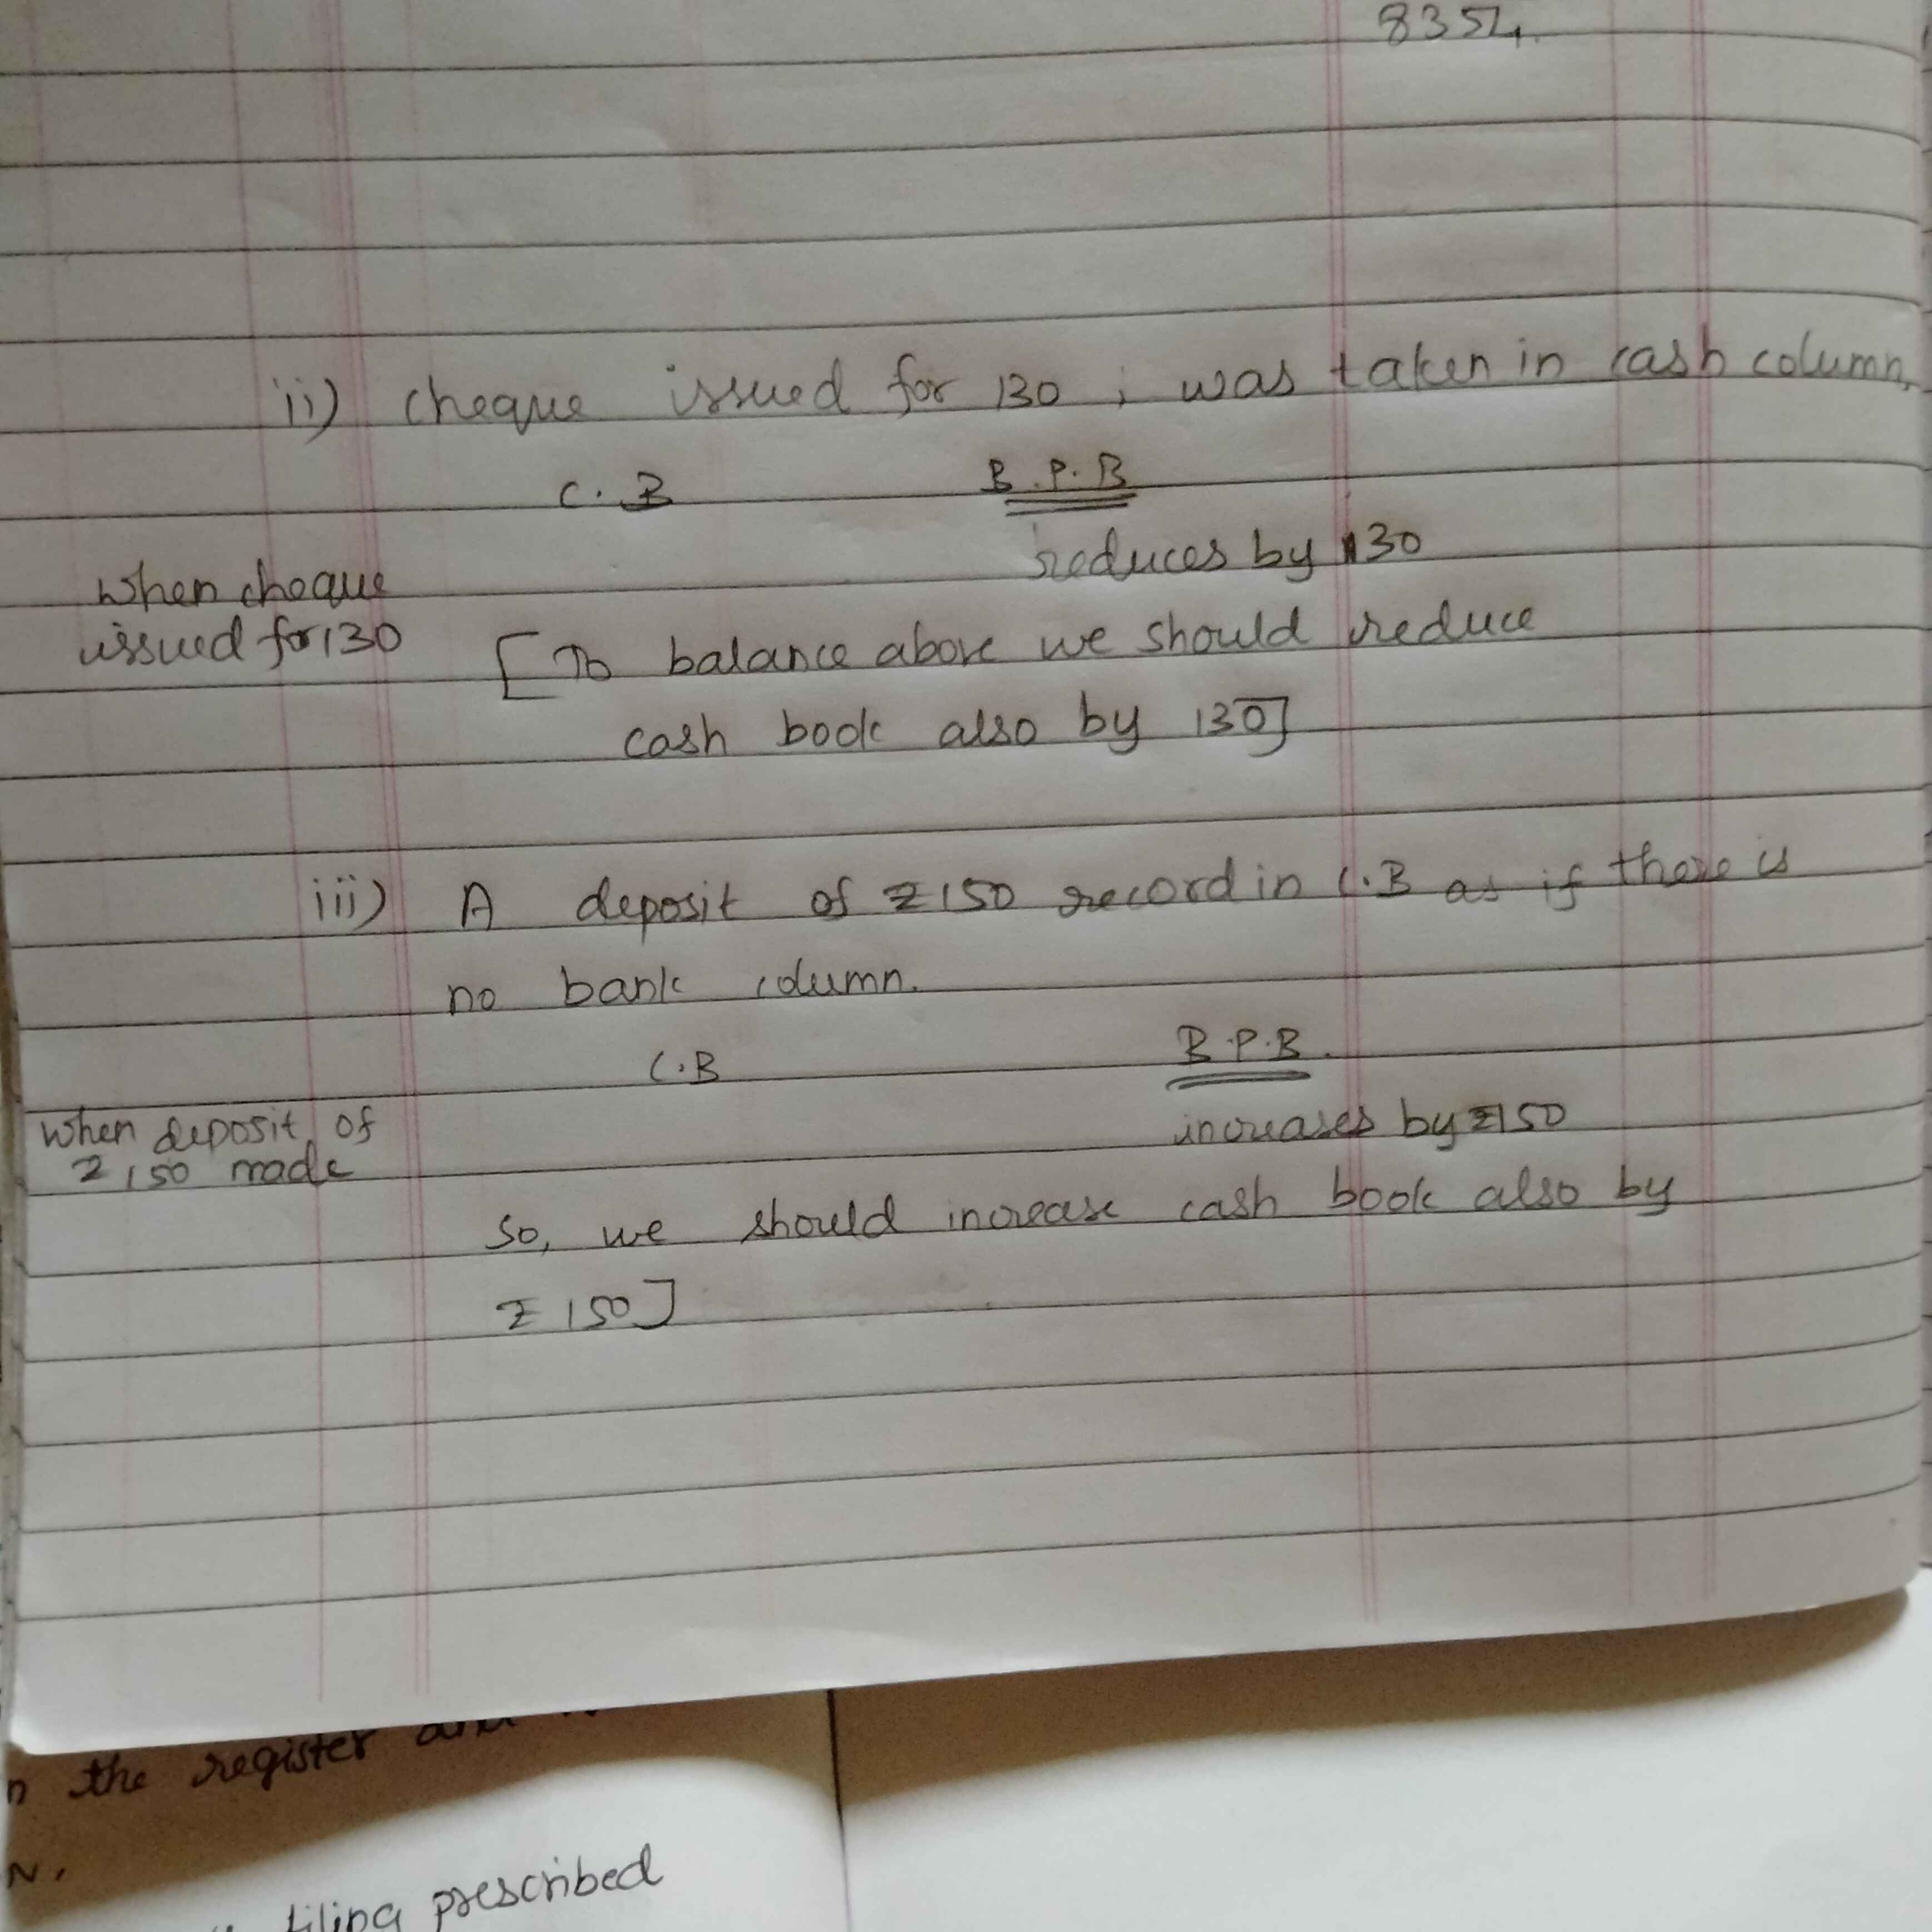 8354
ii) cheque issued for 130 ; was taken in cash column,
C. B B.P.B
reduces by 130
when cheque
issued for 130 [To balance above we should reduce
cash book also by 130]
iii) A deposit of ₹150 record in C.B as if there is
no bank column.
C.B B.P.B.
when deposit of increases by ₹150
₹150 made
So, we should increase cash book also by
₹ 150]
the register
N.
filing prescribed